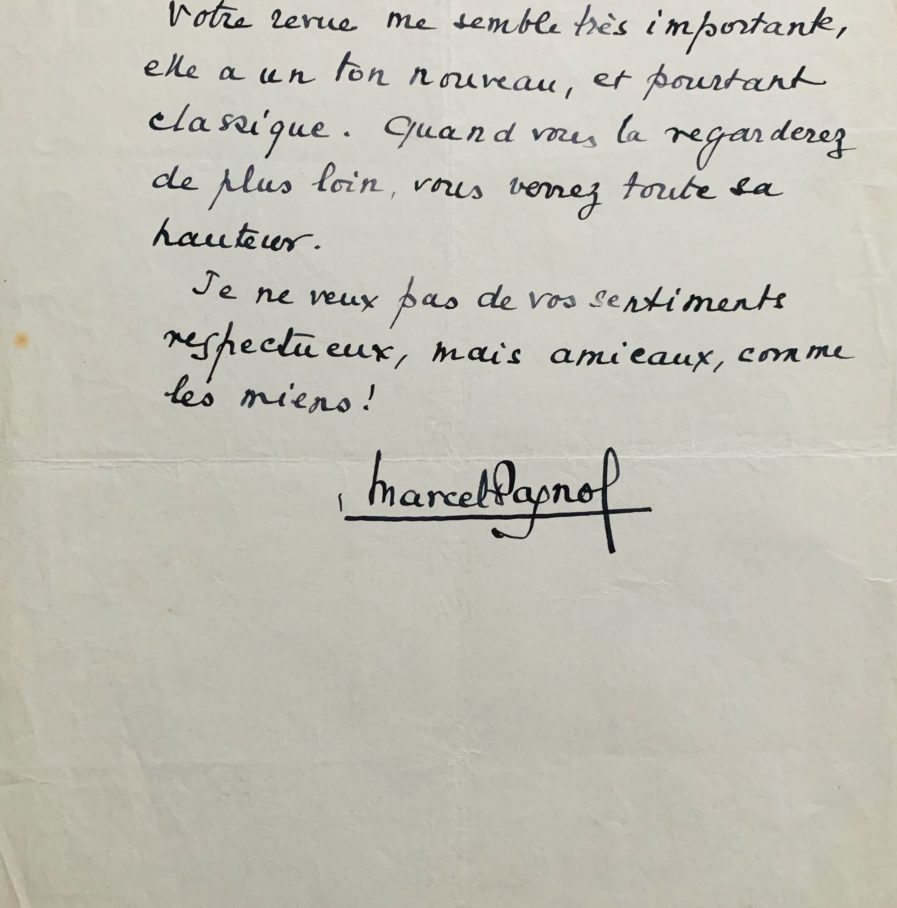 Votre revue me semble très importante,
elle a un ton nouveau, et pourtant
classique. Quand vous la regarderez
de plus loin, vous verrez toute sa
hauteur.
Je ne veux pas de vos sentiments
respectueux, mais amicaux, comme
les miens!
Marcel Pagnol